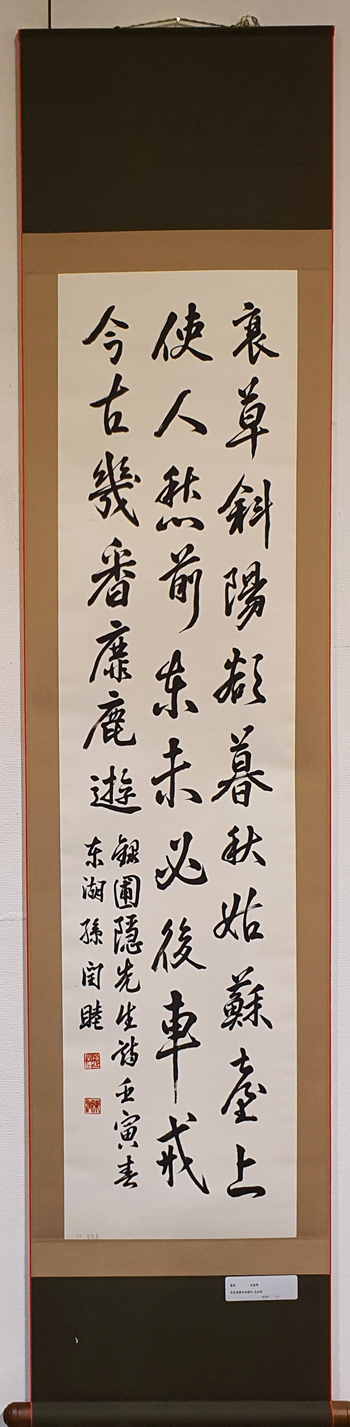 衰草斜陽欲暮秋姑蘇臺上
使人愁前車未必後車戒
今古幾番麋鹿遊
錄圃隱先生詩壬寅春
东湖孫閏睦